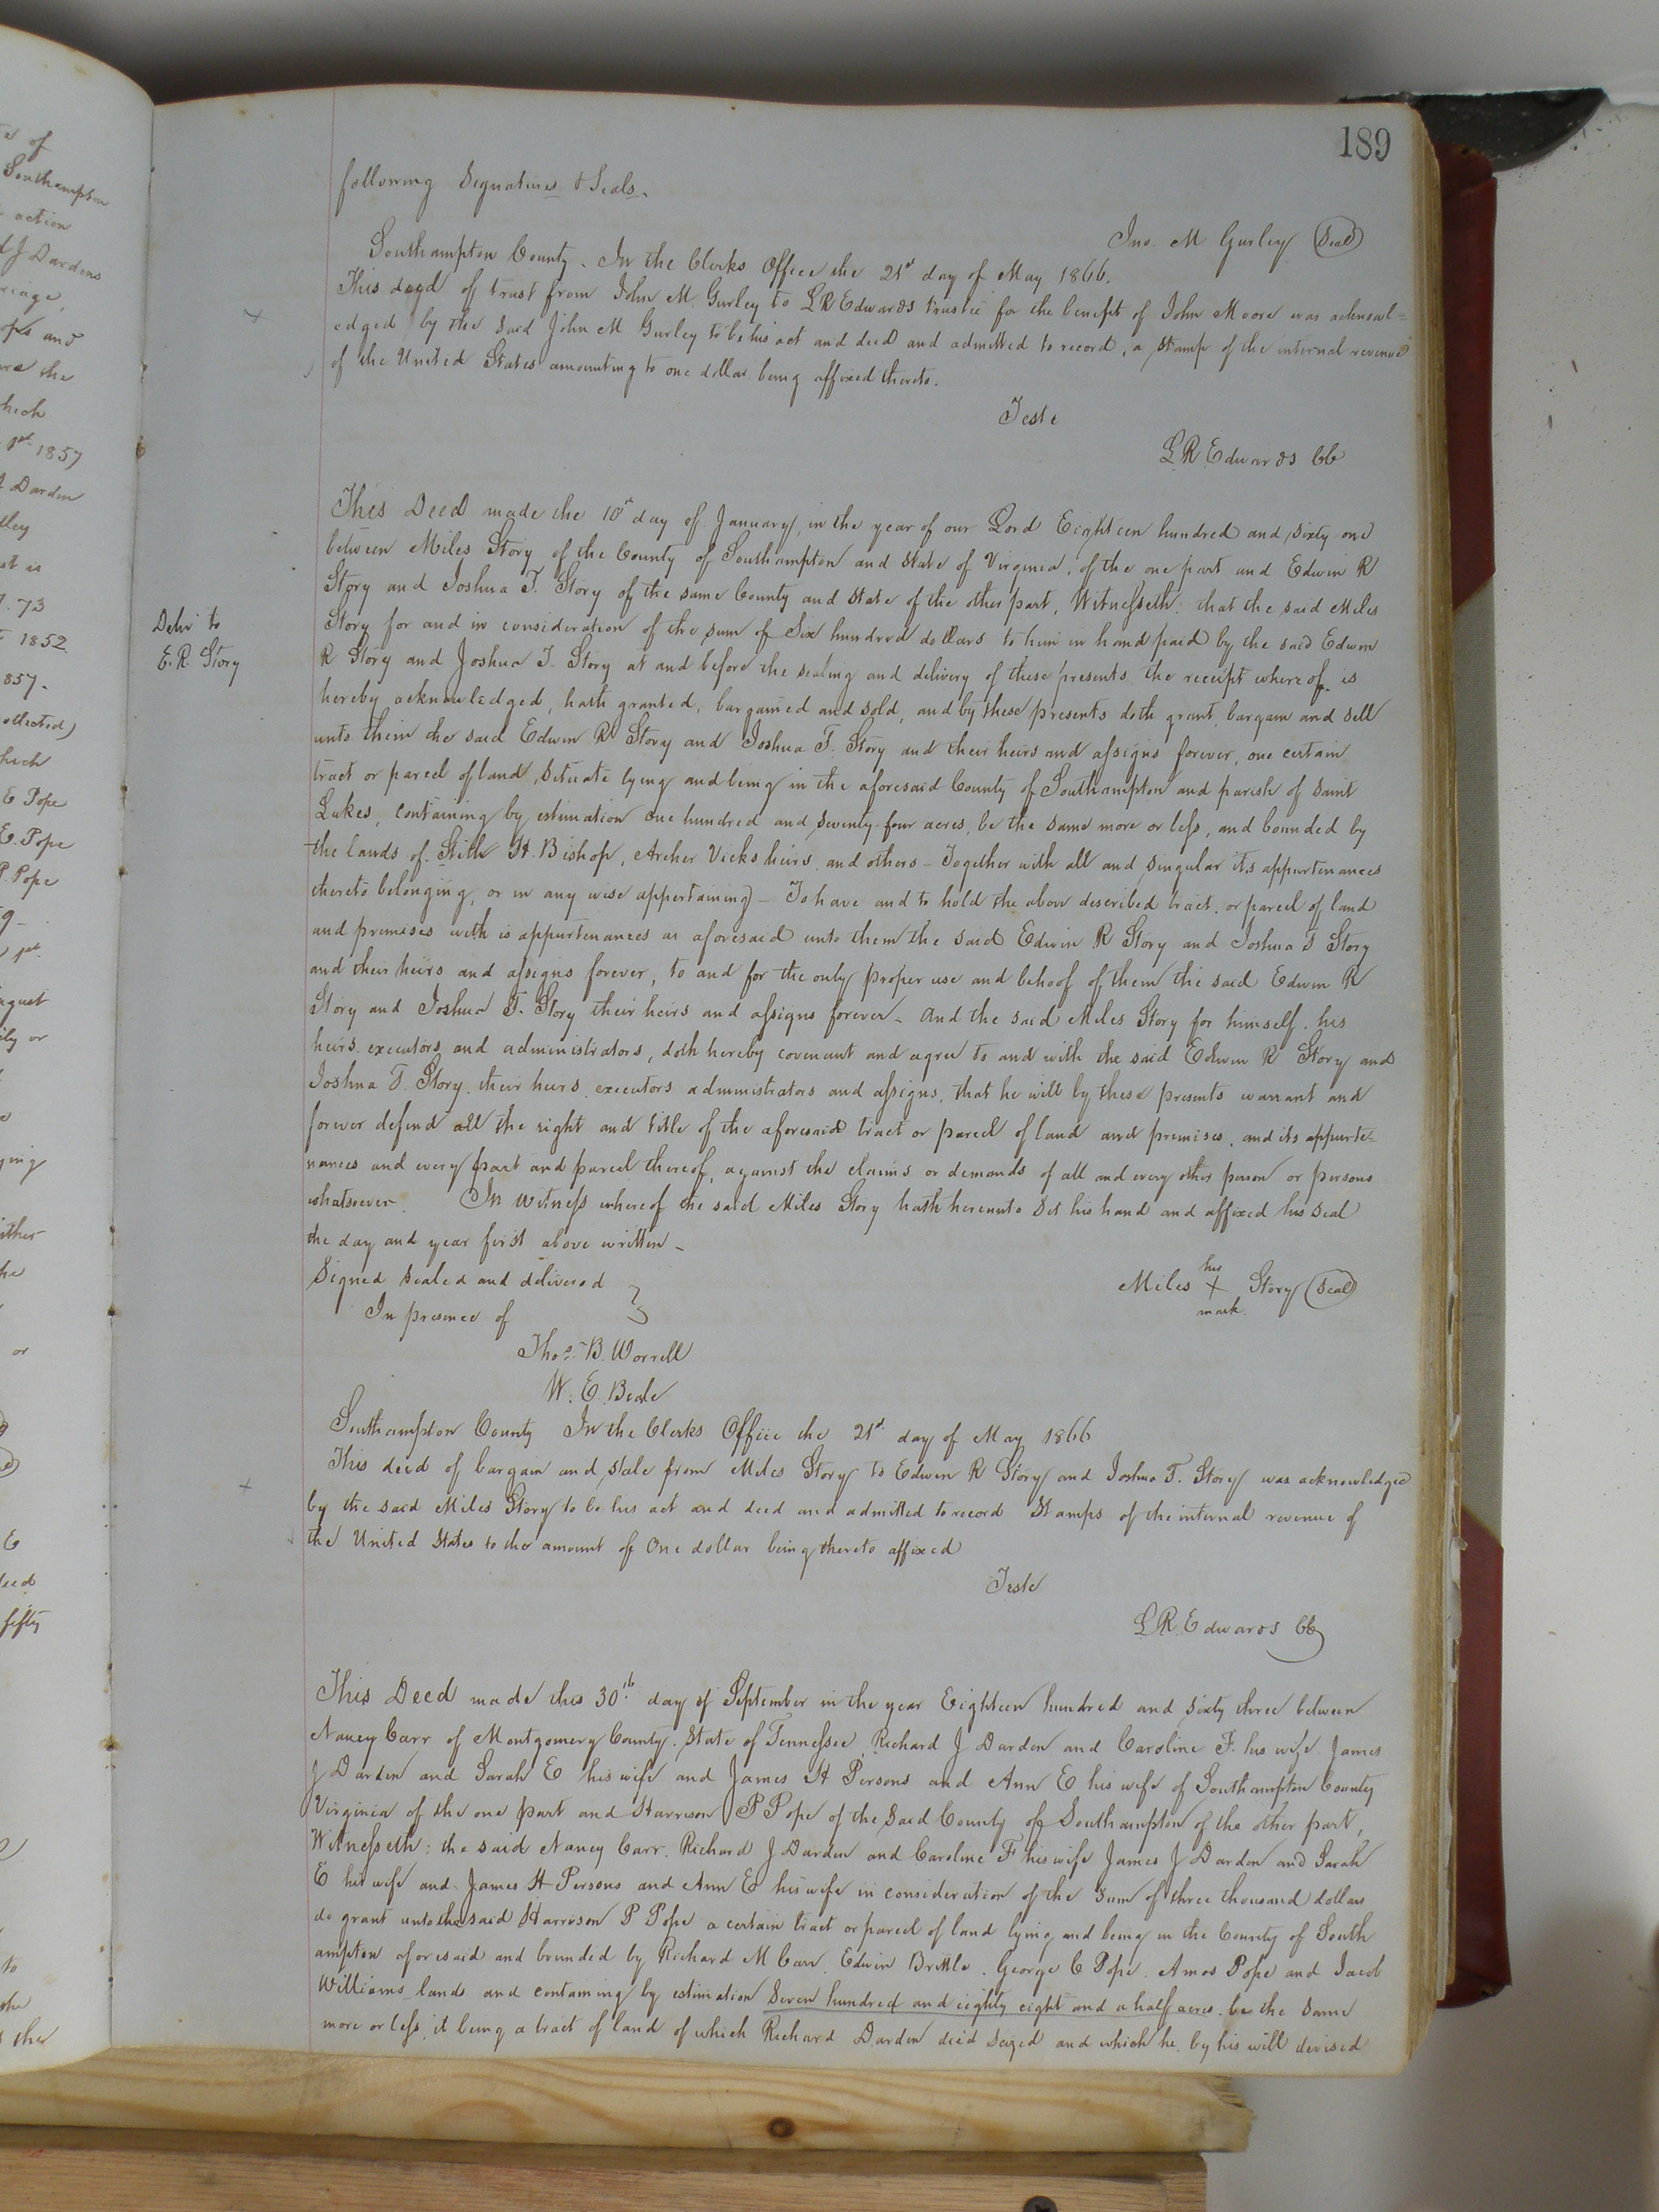 189
following Signatures & Seals.
Jno. M Gurley (Seal)
Southampton County. In the Clerks Office the 21st day of May 1866.
This deed of trust from John M. Gurley to L R Edwards trustee for the benefit of John Moore was acknowl=
edged by the said John M Gurley to be his act and deed and admitted to record, a stamp of the internal revenue
of the United States amounting to one dollar being affixed thereto.
Teste
L R Edwards CC
This Deed made the 10th day of January, in the year of our Lord Eighteen hundred and sixty one
between Miles Story of the County of Southampton and State of Virginia, of the one part and Edwin R
Story and Joshua T. Story of the same County and State of the other part, Witnesseth: that the said Miles
Story for and in consideration of the sum of Six hundred dollars to him in hand paid by the said Edwin
R Story and Joshua T. Story at and before the sealing and delivery of these presents, the receipt whereof is
hereby acknowledged, hath granted, bargained and sold, and by these presents doth grant, bargain and sell
unto them the said Edwin R Story and Joshua T. Story and their heirs and assigns forever, one certain
tract or parcel of land, situate lying and being in the aforesaid County of Southampton and parish of Saint
Lukes, containing by estimation One hundred and seventy-four acres, be the same more or less, and bounded by
the lands of Stith H. Bishop, Archer Vicks heirs, and others - Together with all and singular its appurtenances
thereto belonging, or in any wise appertaining - To have and to hold the above described tract, or parcel of land
and premises with is appurtenances as aforesaid unto them the said Edwin R Story and Joshua T Story
and their heirs and assigns forever, to and for the only proper use and behoof of them the said Edwin R
Story and Joshua T. Story their heirs and assigns forever - And the said Miles Story for himself, his
heirs, executors, and administrators, doth hereby covenant and agree to and with the said Edwin R Story and
Joshua T. Story, their heirs, executors administrators and assigns, that he will by these presents warrant and
forever defend all the right and title of the aforesaid tract or parcel of land and premises, and its appurte=
nances and every part and parcel thereof, against the claims or demands of all and every other person or persons
whatsoever. In Witness whereof the said Miles Story hath hereunto set his hand and affixed his seal
the day and year first above written -
Signed sealed and delivered
In presence of
Miles his + mark Story (Seal)
Thos. B. Worrell
W. E. Beale
Southampton County In the Clerks Office the 21st day of May 1866
This deed of bargain and sale from Miles Story to Edwin R Story and Joshua T. Story was acknowledged
by the said Miles Story to be his act and deed and admitted to record Stamps of the internal revenue of
the United States to the amount of One dollar being thereto affixed
Teste
L R. Edwards CC
This Deed made this 30th day of September in the year Eighteen hundred and sixty three between
Nancy Carr of Montgomery County, State of Tennessee, Richard J Darden and Caroline F. his wife, James
J Darden and Sarah E his wife and James H Persons and Ann E his wife of Southampton County
Virginia of the one part and Harrison P Pope of the said County of Southampton of the other part,
Witnesseth: the said Nancy Carr, Richard J Darden and Caroline F his wife James J Darden and Sarah
E his wife and James H Persons and Ann E his wife in consideration of the sum of three thousand dollars
do grant unto the said Harrison P Pope a certain tract or parcel of land lying and being in the County of South
ampton aforesaid and bounded by Richard M Carr, Edwin Brittle, George C Pope, Amos Pope and Jacob
Williams lands and containing by estimation Seven hundred and eighty eight and a half acres, be the same
more or less, it being a tract of land of which Richard Darden died seized and which he, by his will devised
Delv'd to
E. R. Story
of
Southampton
action
J Dardens
and
the
1st 1857
Darden
73
1852.
1857.
E Pope
E. Pope
P. Pope
or
or
E
fifty
to
the